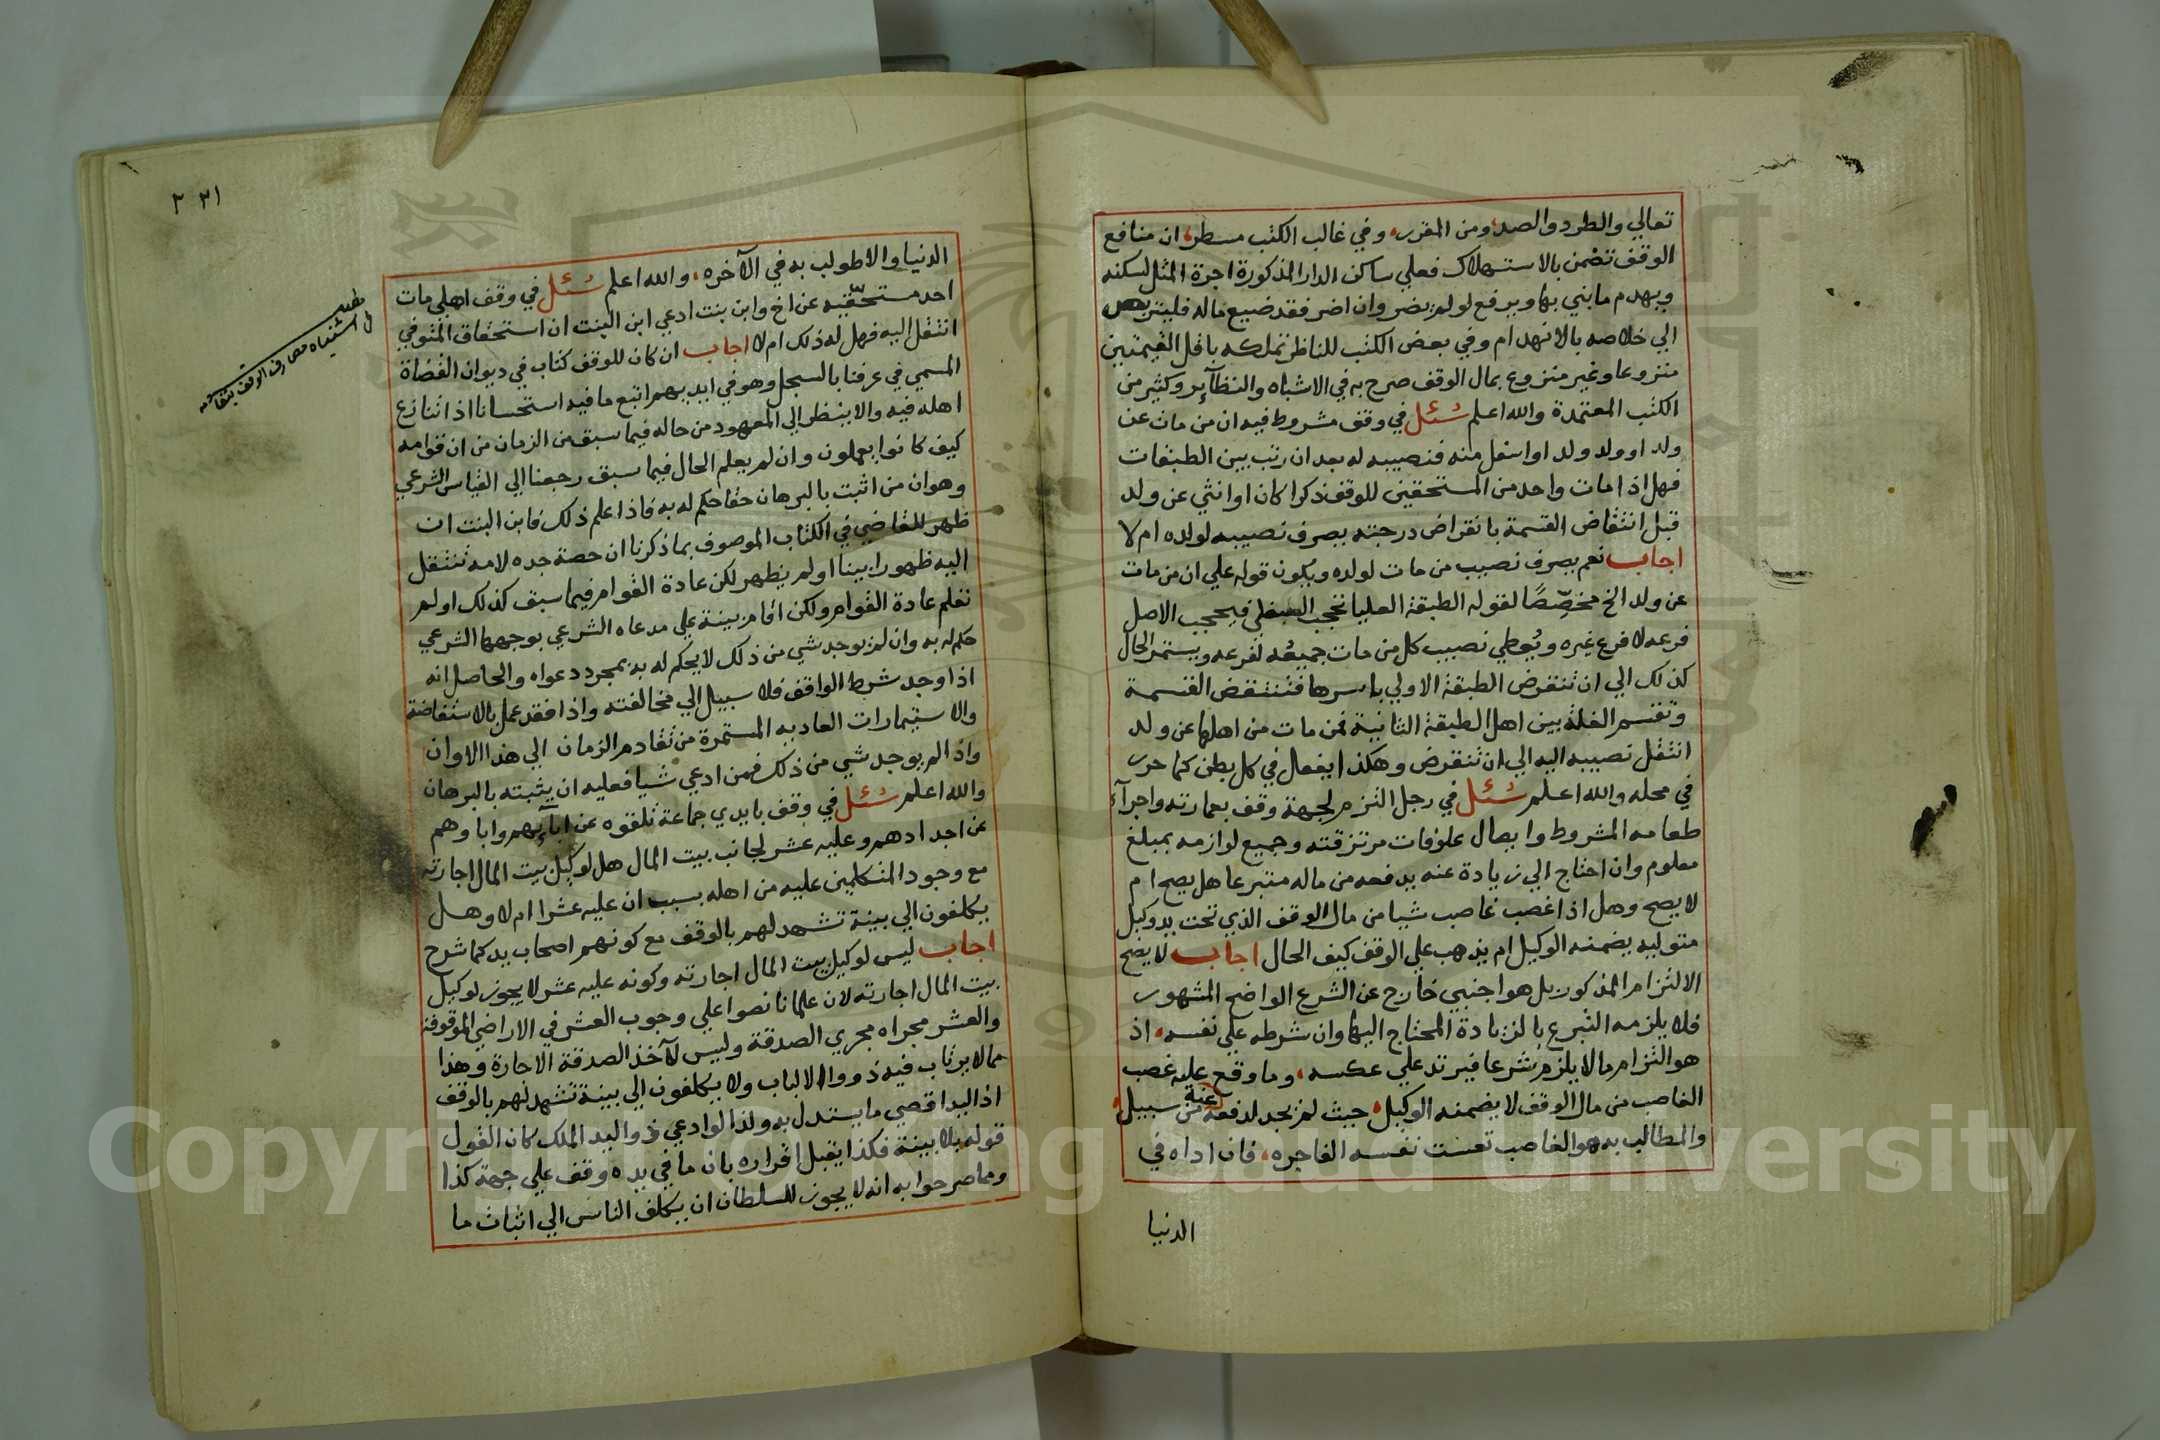 تعالي والطرد والصد، ومن المقرر، وفي غالب الكتب مسطر، ان منافع
الوقف تضمن بالاستهلاك فعلي ساكن الدار المذكورة اجرة المثل لسكنه
ويهدم ما بني بها ويرفع لو لم يضر وان اضر فقد ضيع ماله فليتربص
الي خلاصه بالانهدام وفي بعض الكتب للناظر تملكه باقل القيمتين
منزوعا وغير منزوع بمال الوقف صرح به في الاشباه والنظآير وكثير من
الكتب المعتمدة والله اعلم سُئل في وقف مشروط فيه ان من مات عن
ولد او ولد ولد او اسفل منه فنصيبه له بعد ان رتب بين الطبقات
فهل اذا مات واحد من المستحقين للوقف ذكرا كان او انثي عن ولد
قبل انتقاض القسمة بانقراض درجته يصرف نصيبه لولده ام لا
اجاب نعم يصرف نصيب من مات لولده ويكون قوله علي ان من مات
عن ولد الخ مخصّصًا لقوله الطبقة العليا تحجب السفلي فيحجب الاصل
فرعه لا فرع غيره ويُعطي نصيب كل من مات جميعُه لفرعه ويستمر الحال
كذلك الي ان تنقرض الطبقة الاولي باسرها فتنتقض القسمة
وتقسم الغلة بين اهل الطبقة الثانية فمن مات من اهلها عن ولد
انتقل نصيبه اليه الي ان تنقرض وهكذا يفعل في كل بطن كما حرر
في محله والله اعلم سُئل في رجل التزم لجهة وقف بعمارته واجرآء
طعامه المشروط وايصال علوفات مرتزقته وجميع لوازمه بمبلغ
معلوم وان احتاج الي زيادة عنه يدفعه من ماله متبرعا هل يصح ام
لا يصح وهل اذا غصب غاصب شيا من مال الوقف الذي تحت يد وكيل
متوليه يضمنه الوكيل ام يذهب علي الوقف كيف الحال اجاب لا يصح
الالتزام المذكور بل هو اجنبي خارج عن الشرع الواضح المشهور
فلا يلزمه التبرع بالزيادة المحتاج اليها وان شرطه علي نفسه، اذ
هو التزام ما لا يلزم شرعا فيرتد علي عكسه، وما وقع عليه غصب
الغاصب من مال الوقف لا يضمنه الوكيل، حيث لم يجد لدفعه عنه من سبيل،
والمطالب به هو الغاصب تعست نفسه الفاجره، فان اداه في
الدنيا
٢٣١
الدنيا والا طولب به في الآخره، والله اعلم سُئل في وقف اهلي مات
احد مستحقّيه عن اخ وابن بنت ادعي ابن البنت ان استحقاق المتوفي
انتقل اليه فهل له ذلك ام لا اجاب ان كان للوقف كتاب في ديوان القضاة
المسمي في عرفنا بالسجل وهو في ايديهم اتبع ما فيه استحسانا اذا تنازع
اهله فيه والا ينظر الي المعهود من حاله فيما سبق من الزمان من ان قوامه
كيف كانوا يعملون وان لم يعلم الحال فيما سبق رجعنا الي القياس الشرعي
وهو ان من اثبت بالبرهان حقا حكم له به فاذا علم ذلك فابن البنت ان
ظهر للقاضي في الكتاب الموصوف بما ذكرنا ان حصة جده لامه تنتقل
اليه ظهورا بينا او لم يظهر لكن عادة القوام فيما سبق كذلك او لم
نعلم عادة القوام ولكن اقام بينة علي مدعاه الشرعي بوجهها الشرعي
حكم له به وان لم يوجد شي من ذلك لا يحكم له به بمجرد دعواه والحاصل انه
اذا وجد شرط الواقف فلا سبيل الي مخالفته واذا فقد عمل بالاستفاضة
والاستيمارات العاديه المستمرة من تقادم الزمان الي هذا الاوان
واذا لم يوجد شي من ذلك فمن ادعي شيا فعليه ان يثبته بالبرهان
والله اعلم سُئل في وقف بايدي جماعة تلقوه عن ابآيهم وابا وهم
عن اجدادهم وعليه عشر لجانب بيت المال هل لوكيل بيت المال اجارته
مع وجود المتكلمين عليه من اهله بسبب ان عليه عشرا ام لا وهل
يكلفون الي بينة تشهد لهم بالوقف مع كونهم اصحاب يد كما شرح
اجاب ليس لوكيل بيت المال اجارته وكونه عليه عشر لا يجوز لوكيل
بيت المال اجارته لان علمانا نصوا علي وجوب العشر في الاراضي الموقوفة
والعشر مجراه مجري الصدقة وليس لآخذ الصدقة الاجارة وهذا
مما لا يرتاب فيه ذووا الالباب ولا يكلفون الي بينة تشهد لهم بالوقف
اذ اليد اقصي ما يستدل به ولذا لو ادعي ذو اليد الملك كان القول
قوله بلا بينة فكذا يقبل اقراره بان ما في يده وقف علي جهة كذا
ومما صرحوا به انه لا يجوز للسلطان ان يكلف الناس الي اثبات ما
مطلب
في اشتباه مصارف الوقف
Copyright © King Saud University